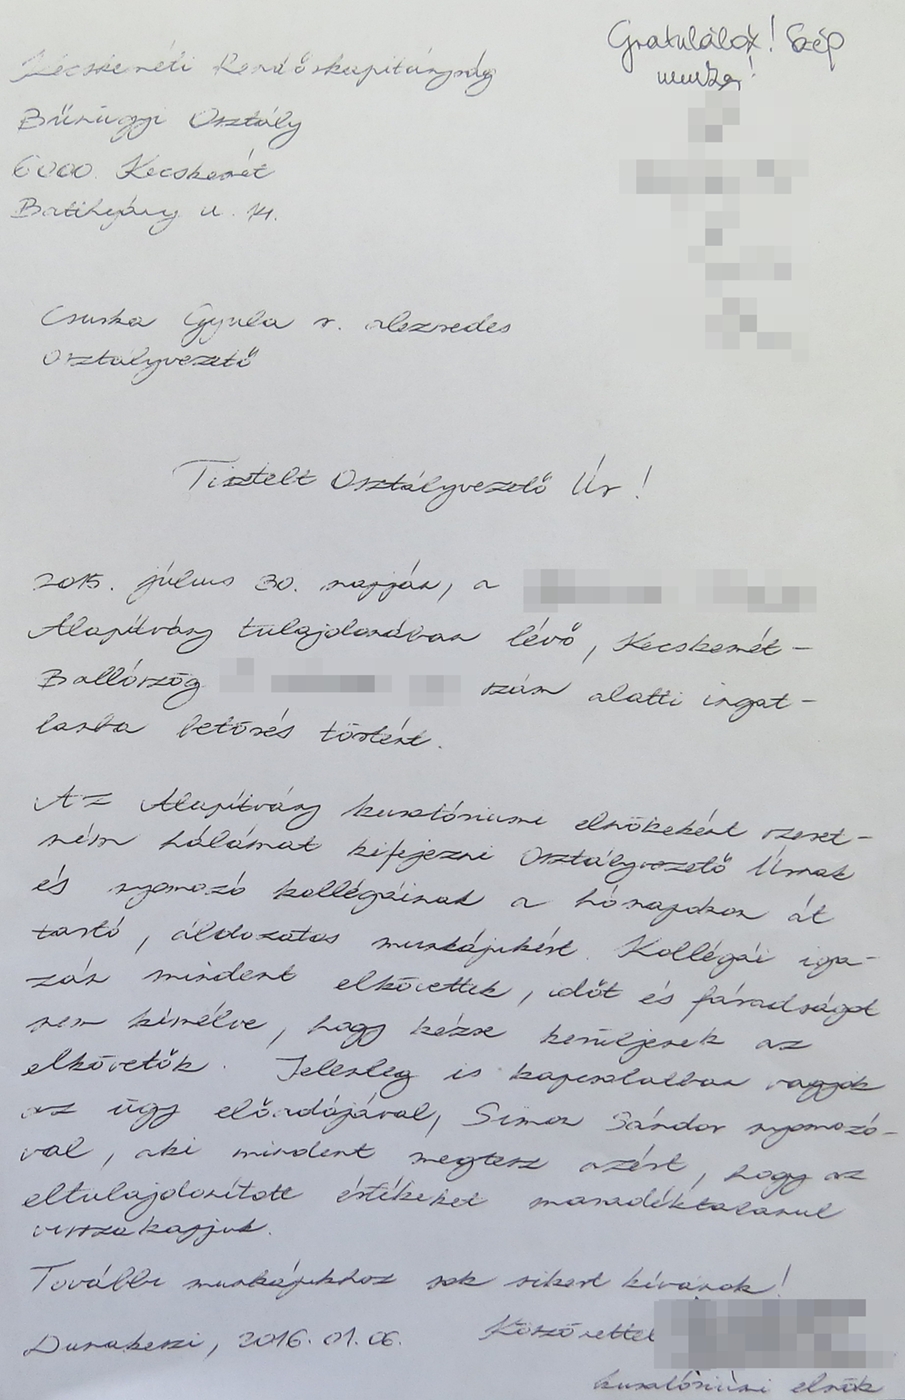 Gratulálok! Szép
munka!
Kecskeméti Rendőrkapitányság
Bűnügyi Osztály
6000 Kecskemét
Batthyány u. 14.
Csuska Gyula r. alezredes
Osztályvezető
Tisztelt Osztályvezető Úr!
2015. július 30. napján, a
Alapítvány tulajdonában lévő, Kecskemét-
Ballószög szám alatti ingat-
lanba betörés történt.
Az Alapítvány kuratóriumi elnökeként szeret-
ném hálámat kifejezni Osztályvezető Úrnak
és nyomozó kollégáinak a hónapokon át
tartó, áldozatos munkájukért. Kollégái iga-
zán mindent elkövettek, időt és fáradságot
nem kímélve, hogy kézre kerüljenek az
elkövetők. Jelenleg is kapcsolatban vagyok
az ügy előadójával, Simon Sándor nyomozó-
val, aki mindent megtesz azért, hogy az
eltulajdonított értékeket maradéktalanul
visszakapjuk.
További munkájukhoz sok sikert kívánok!
Dunakeszi, 2016. 01. 06. Köszönettel
kuratóriumi elnök